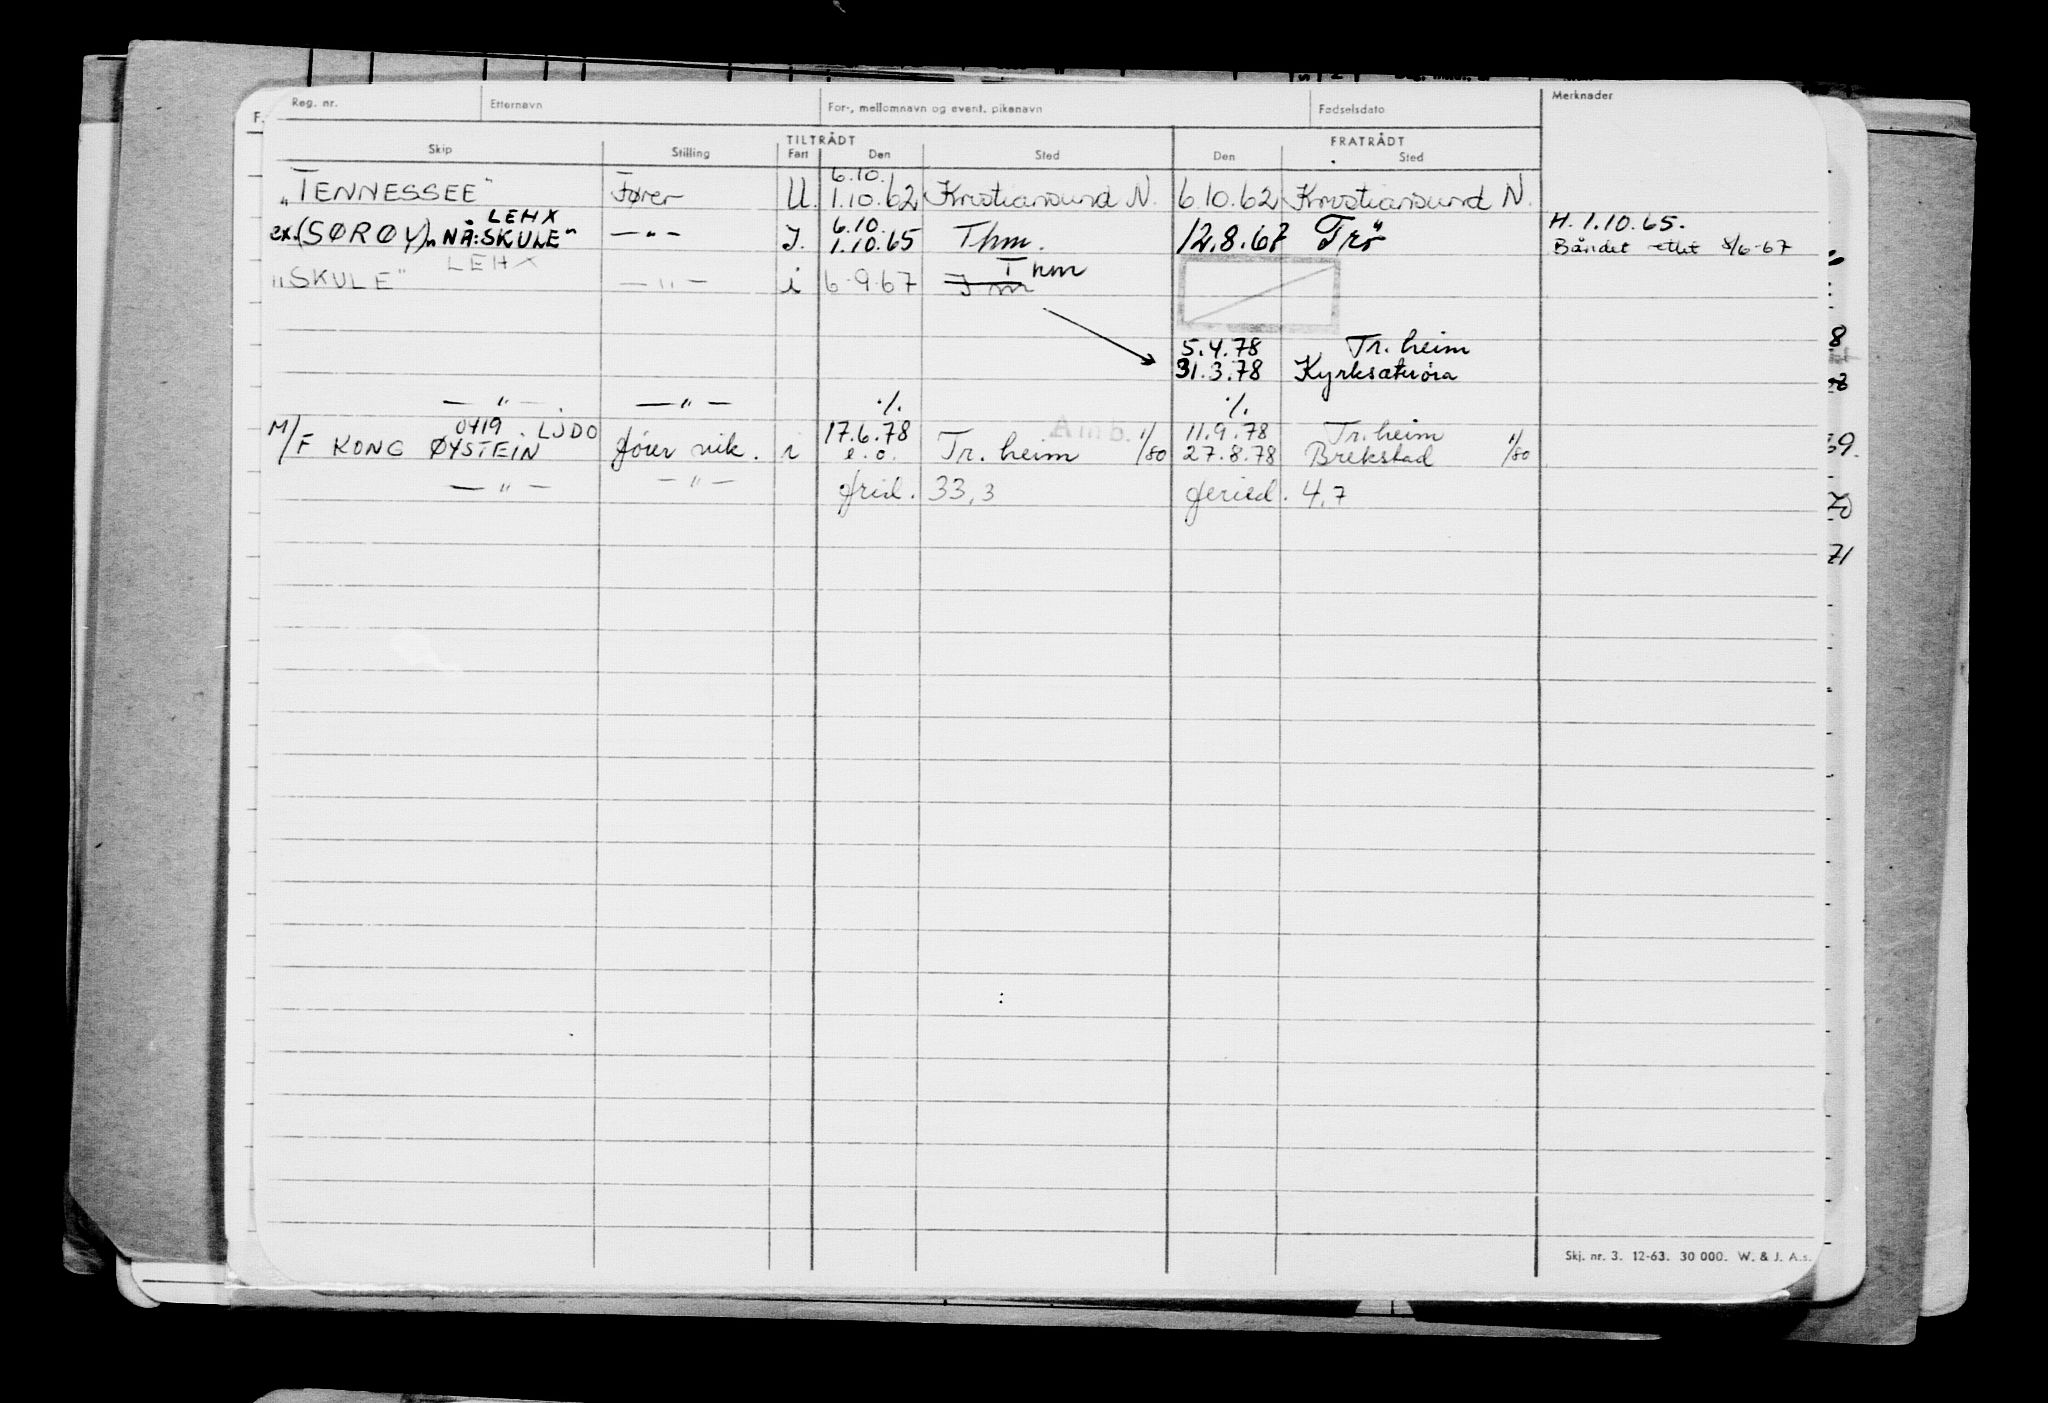 Reg. nr. Etternavn For-, mellomnavn og event. pikenavn Fødselsdato Merknader
F.
TILTRÅDT FRATRÅDT
Skip Stilling Fart Den Sted Den Sted
6.10.
"TENNESSEE" Fører U. 1.10.62 Kristiansund N. 6.10.62 Kristiansund N.
LEHX 6.10. H. 1.10.65.
ex. (SØRØY) NÅ: "SKULE" — " — I. 1.10.65 Thm. 12.8.67 Båndet 8/6-67
LEHX Thm
"SKULE" — " — i 6-9-67
5.4.78 Tr.heim
31.3.78
— " — — " — ./. ./.
0419 LJDO 17.6.78 Amb. 1/80 11.9.78 Tr.heim 1/80
M/F KONG ØYSTEIN fører vik. i e.o. Tr.heim 27.8.78 Brekstad
— " — — " — frid. 33,3 feried. 4,7
8
69.
70
71
Skj. nr. 3. 12-63. 30 000. W. & J. A.s.